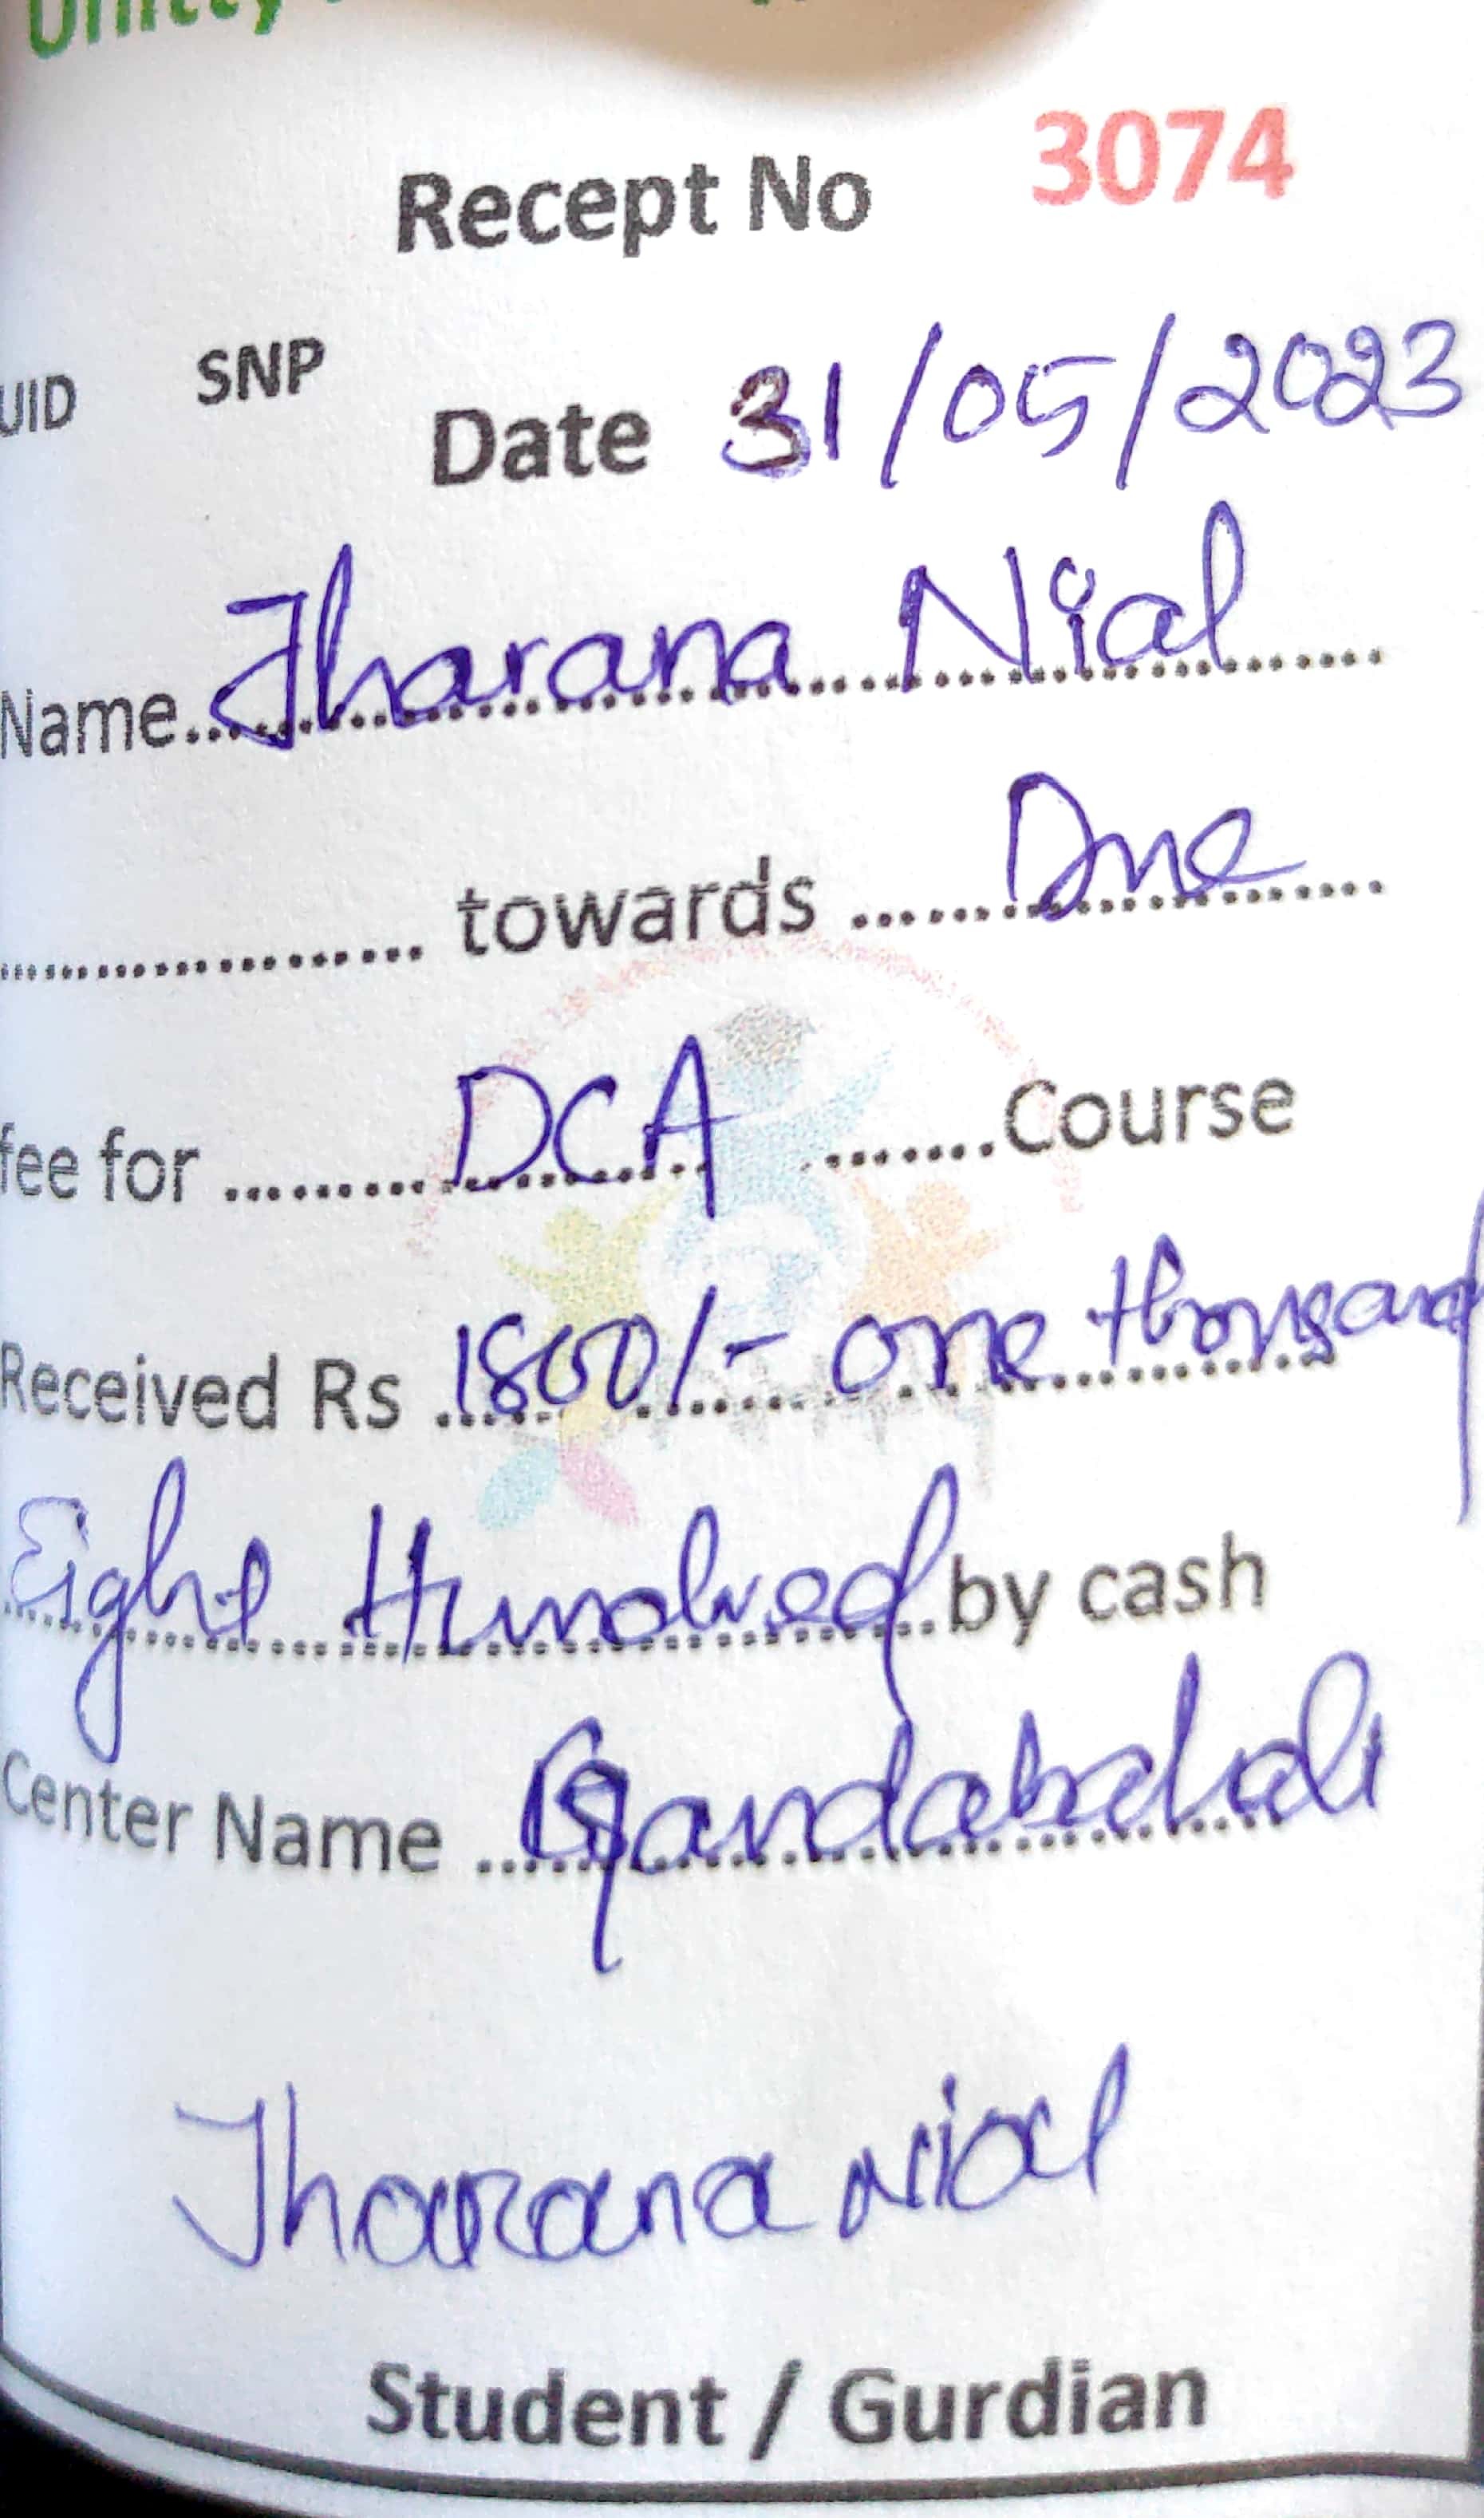 Recept No 3074
UID SNP
Date 31/05/2023
Name Jharana Nial
towards Due
fee for DCA Course
Received Rs 1800/- one thousand
Eight Hundred by cash
Center Name Gandabahali
Jharana Nial
Student / Gurdian